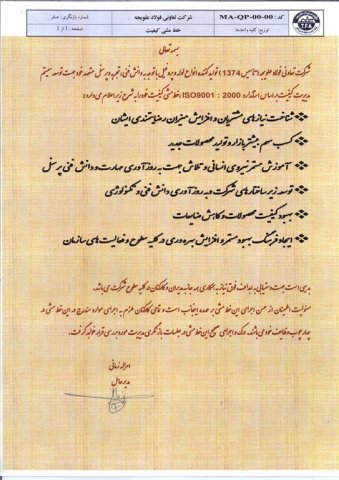 کد: MA-QP-00-00
توزیع: کلیه واحدها
شرکت تعاونی فولاد علویجه
خط مشی کیفیت
شماره بازنگری: صفر
صفحه: 1 از 1
TFA
بسمه تعالی
شرکت تعاونی فولاد علویجه (تاسیس 1374) تولید کننده انواع لوله و پروفیل با توجه به دانش فنی، تجربه و پرسنل متعهد خود جهت توسعه سیستم
مدیریت کیفیت بر اساس استاندارد ISO9001 : 2000 خط مشی کیفیت خود را به شرح زیر اعلام می دارد:
شناخت نیازهای مشتریان و افزایش میزان رضایتمندی ایشان
کسب سهم بیشتر بازار و تولید محصولات جدید
آموزش مستمر نیروی انسانی و تلاش جهت به روز آوری مهارت و دانش فنی پرسنل
توسعه زیر ساختارهای شرکت و به روز آوری دانش فنی و تکنولوژی
بهبود کیفیت محصولات و کاهش ضایعات
ایجاد فرهنگ بهبود مستمر و افزایش بهره وری در کلیه سطوح و فعالیت های سازمان
بدیهی است جهت دستیابی به اهداف فوق نیاز به همکاری همه جانبه مدیران و کارکنان در کلیه سطوح شرکت می باشد.
مسئولیت اطمینان از حسن اجرای این خط مشی بر عهده اینجانب است و تمامی کارکنان ملزم به اجرای موارد مندرج در این خط مشی در
چهارچوب وظایف خود می باشند. درک و اجرای صحیح این خط مشی در جلسات بازنگری مدیریت مورد بررسی قرار خواهد گرفت.
امراله زمانی
مدیر عامل